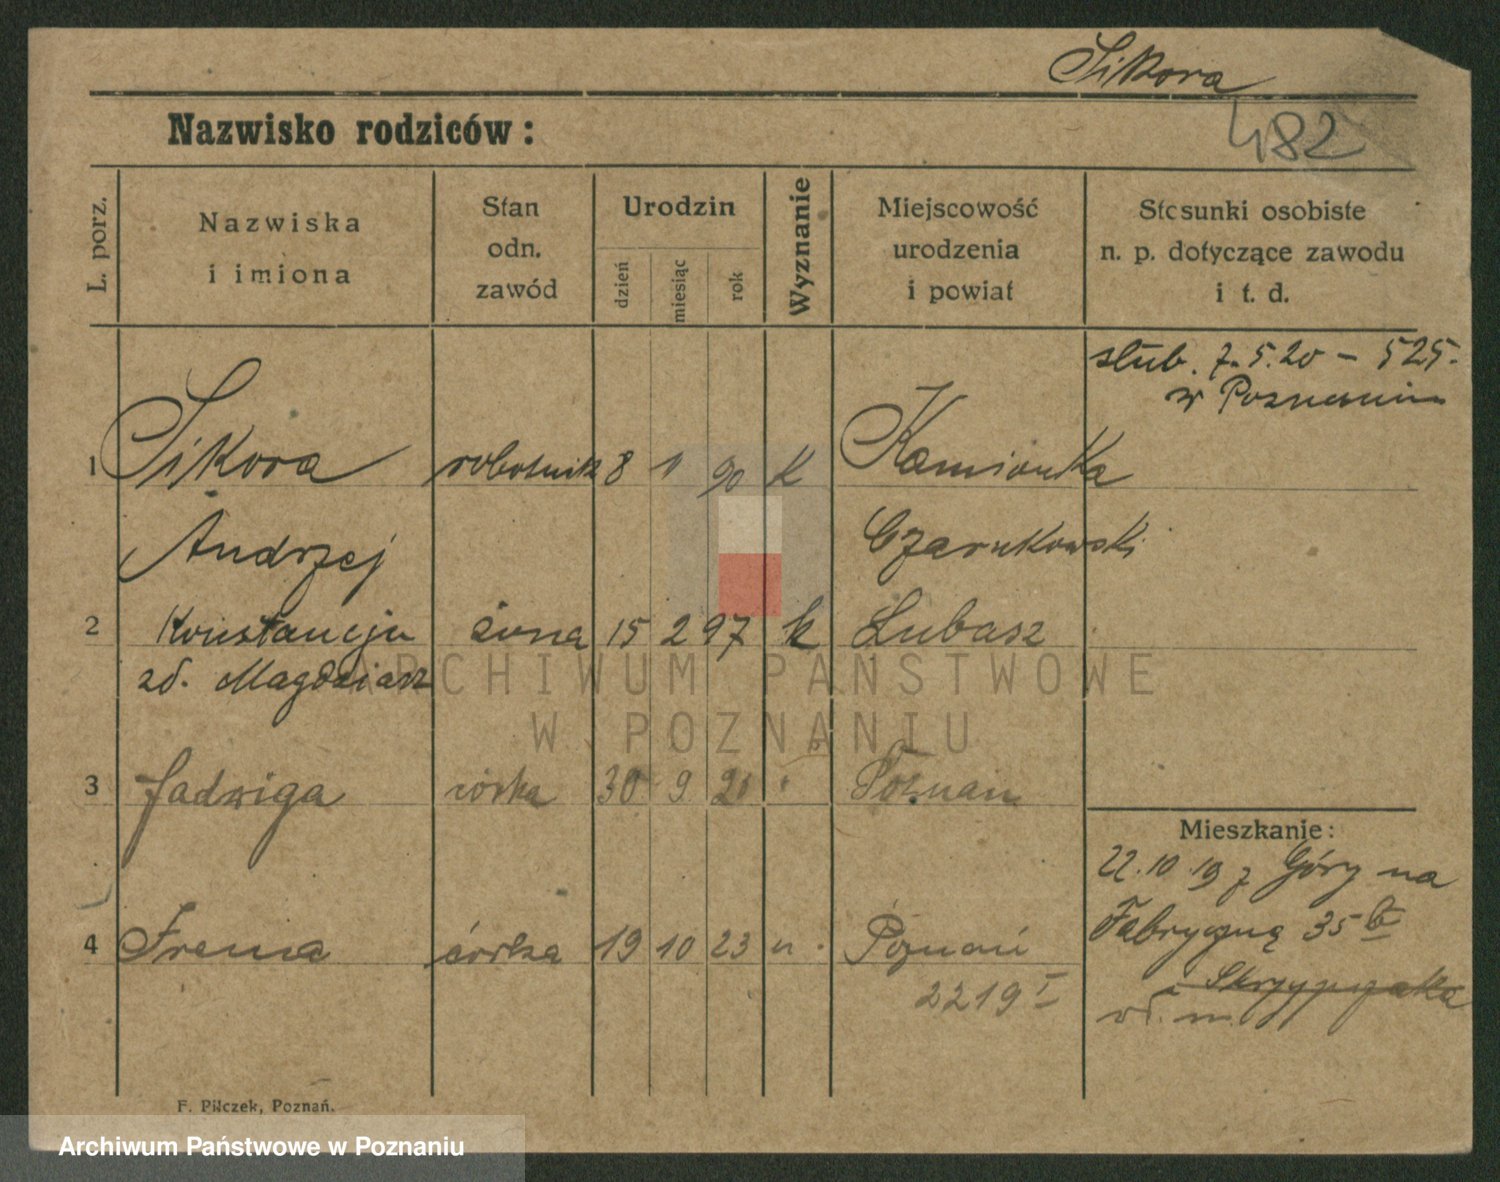 Sikora
482
Nazwisko rodziców:
L. porz.
Nazwiska
i imiona
Stan
odn.
zawód
Urodzin
dzień
miesiąc
rok
Wyznanie
Miejscowość
urodzenia
i powiat
Stosunki osobiste
n. p. dotyczące zawodu
i t. d.
ślub. 7.5.20 - 525.
w Poznaniu
1 Sikora robotnik 8 90 K Kamionka
Andrzej Czarnkowski
2 Konstancja żona 15 2 97 k Lubasz
zd. Magdziarz
ARCHIWUM PAŃSTWOWE
W POZNANIU
3 Jadwiga córka 30 9 Poznań
Mieszkanie:
22.10.19 z Góry na
Fabryczną 35
4 Irena córka 19 10 23 Poznań
2219 I
F. Pilczek, Poznań.
Archiwum Państwowe w Poznaniu